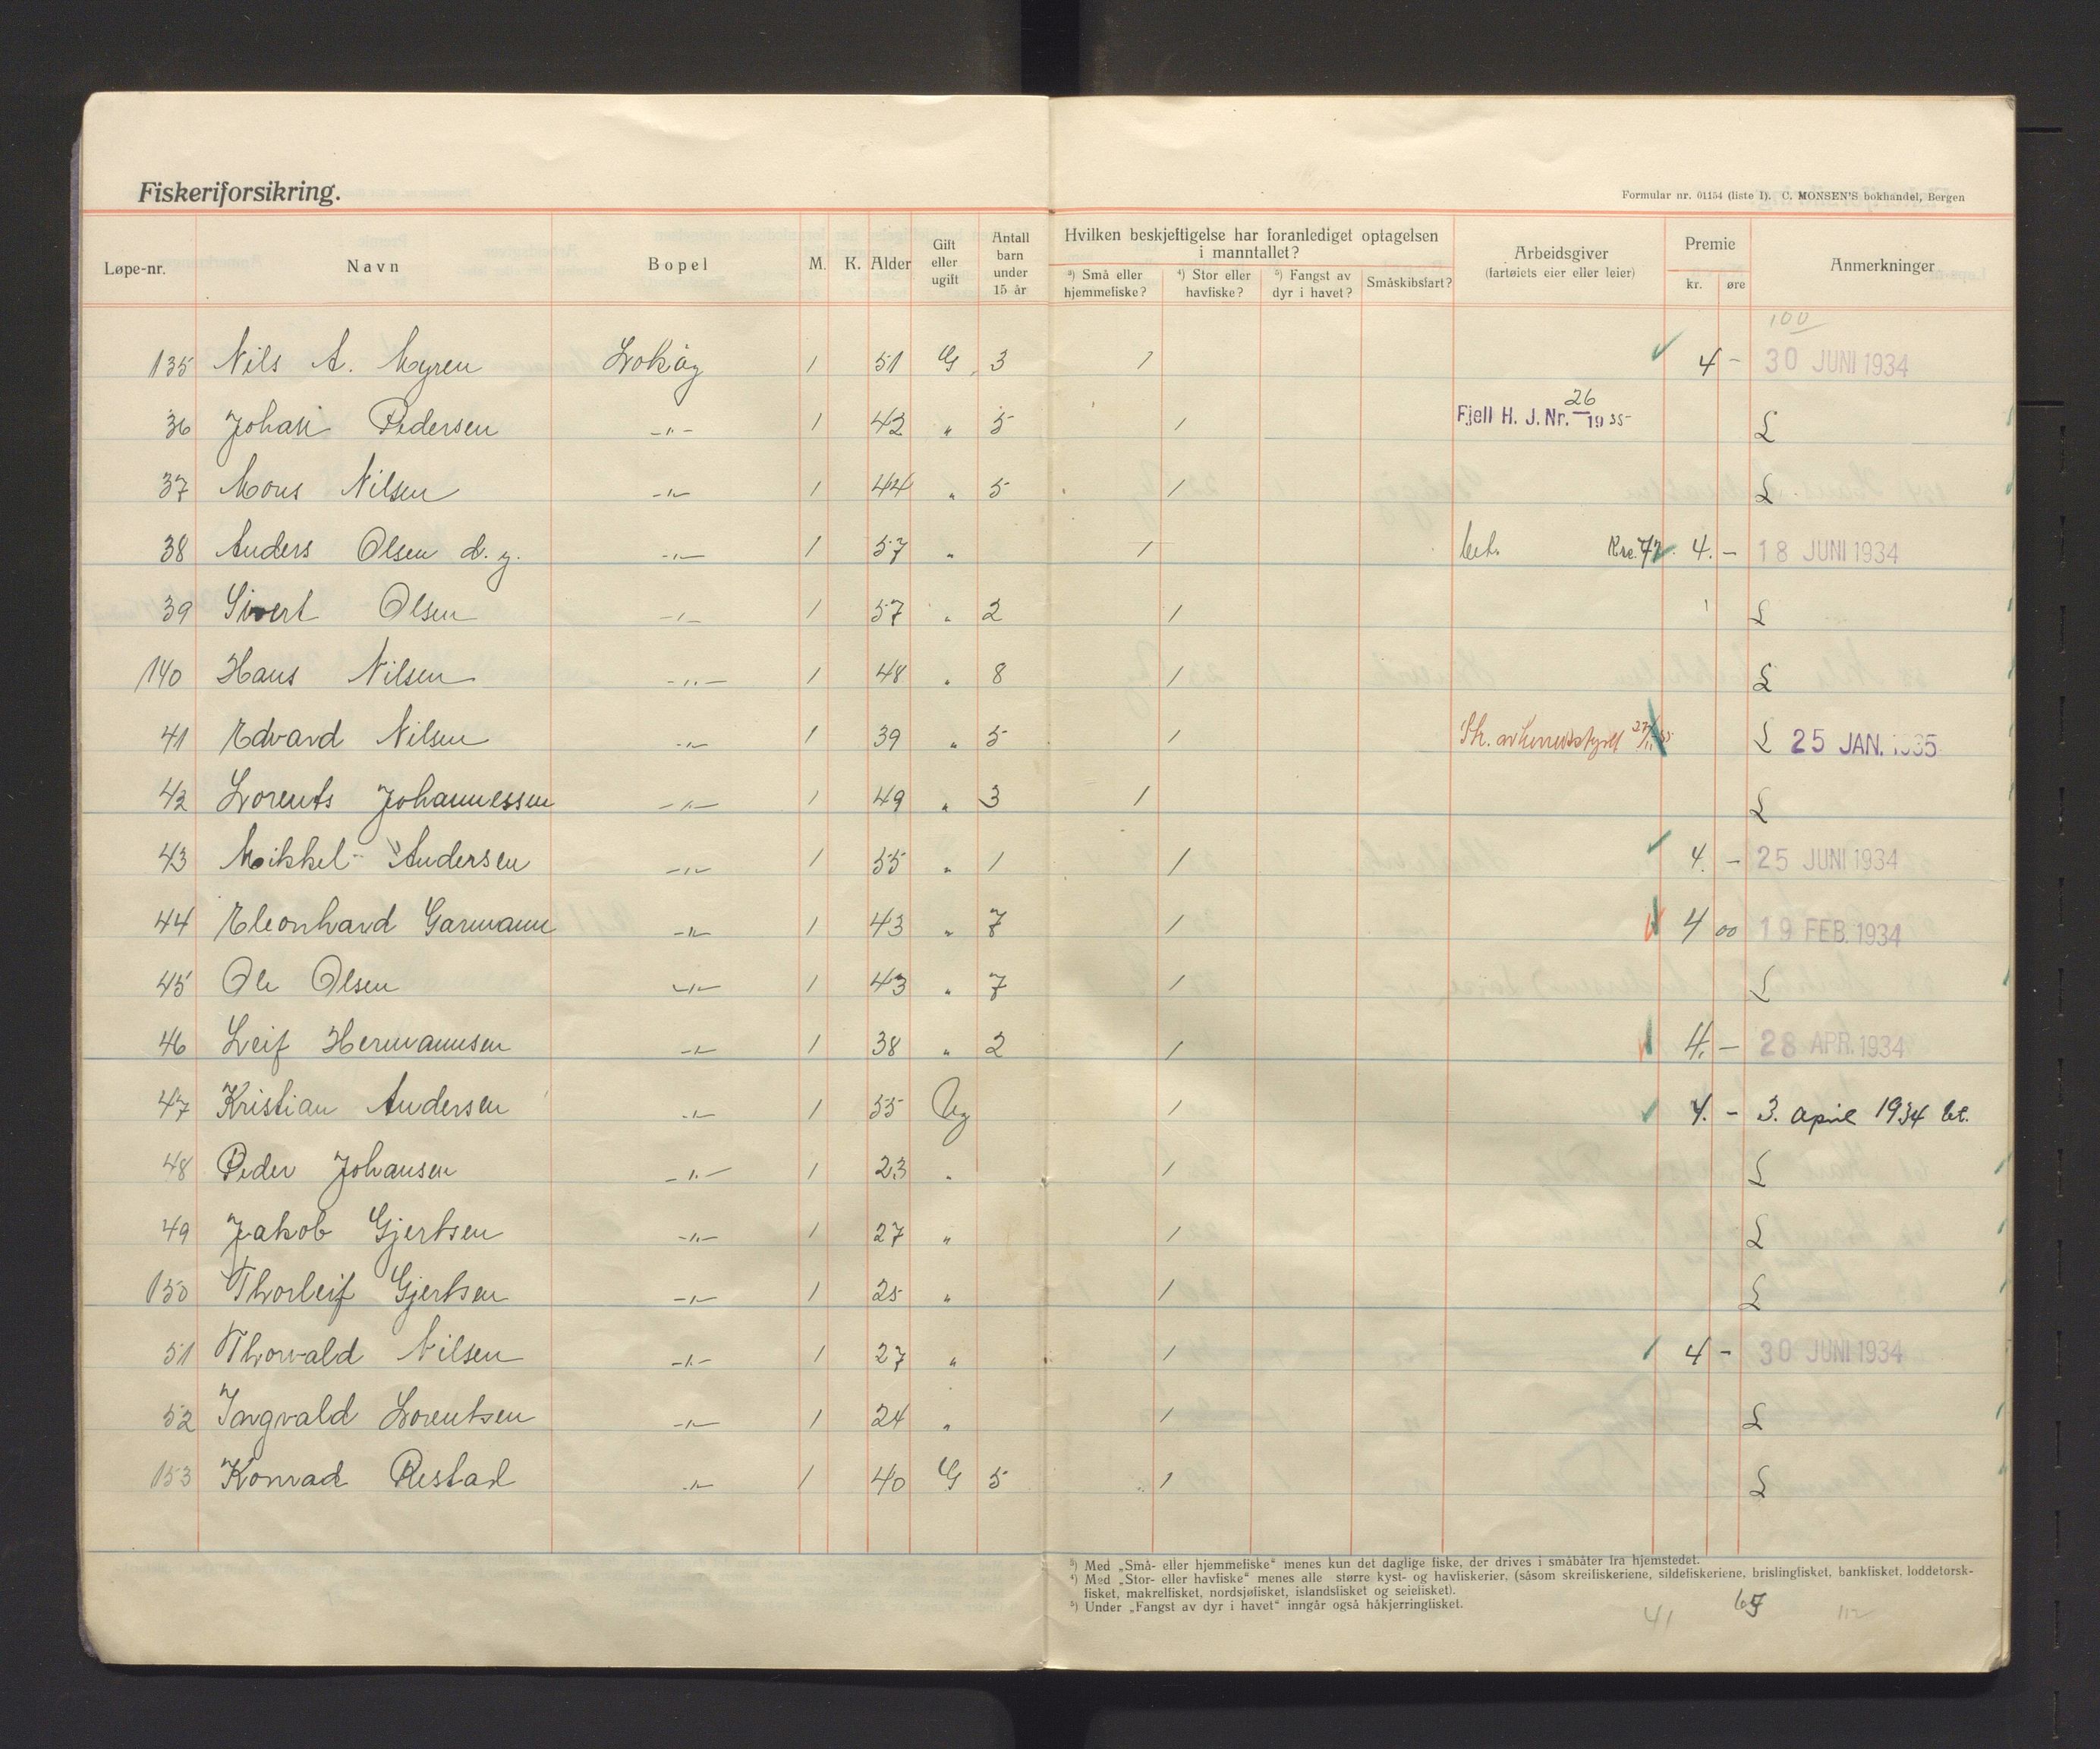 Fiskeriforsikring.
Formular nr. 01154 (liste I). C. MONSEN'S bokhandel, Bergen
Løpe-nr. Navn Bopel M. K. Alder Gift eller ugift Antall barn under 15 år Hvilken beskjeftigelse har foranlediget optagelsen i manntallet? ³) Små eller hjemmefiske? ⁴) Stor eller havfiske? ⁵) Fangst av dyr i havet? Småskibsfart? Arbeidsgiver (fartøiets eier eller leier) Premie kr. øre Anmerkninger
100
135 Nils A. Myren Lokøy 1 51 G 3 1 4 - 30 JUNI 1934
36 Johan Pedersen -"- 1 42 " 5 1 Fjell H. J. Nr. 26 - 1935 L
37 Mons Nilsen -"- 1 44 " 5 1 L
38 Anders Olsen d. y. -"- 1 57 " 1 bet. 4. - 18 JUNI 1934
39 Sivert Olsen -"- 1 57 " 2 1 L
140 Hans Nilsen -"- 1 48 " 8 1 L
41 Edvard Nilsen -"- 1 39 " 5 1 L 25 JAN. 1935
42 Lorents Johannessen -"- 1 49 " 3 1 L
43 Mikkel Andersen -"- 1 55 " 1 1 4. - 25 JUNI 1934
44 Eleonhard Garmann -"- 1 43 " 7 1 4 00 19 FEB. 1934
45 Ole Olsen -"- 1 43 " 7 1 L
46 Leif Hermannsen -"- 1 38 " 2 1 4. - 28 APR. 1934
47 Kristian Andersen -"- 1 55 Ug 1 4. - 3. april 1934 bet.
48 Peder Johansen -"- 1 23 " 1 L
49 Jakob Gjertsen -"- 1 27 " 1 L
150 Thorleif Gjertsen -"- 1 25 " 1 L
51 Thorvald Nilsen -"- 1 27 " 1 4 - 30 JUNI 1934
52 Ingvald Lorentsen -"- 1 24 " 1 L
153 Konrad Restad -"- 1 40 G 5 1 L
³) Med „Små- eller hjemmefiske" menes kun det daglige fiske, der drives i småbåter fra hjemstedet.
⁴) Med „Stor- eller havfiske" menes alle større kyst- og havfiskerier, (såsom skreifiskeriene, sildefiskeriene, brislingfisket, bankfisket, loddetorsk-
fisket, makrelfisket, nordsjøfisket, islandsfisket og seiefisket).
⁵) Under „Fangst av dyr i havet" inngår også håkjerringfisket.
41 112